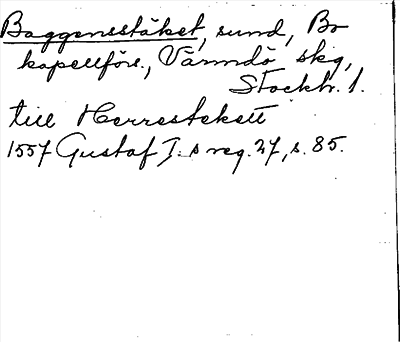 Baggensstäket, sund, Bo
kapellförs., Värmdö skg,
Stockh. l.
till Herrestekett
1557 Gustaf I.s reg. 27, s. 85.